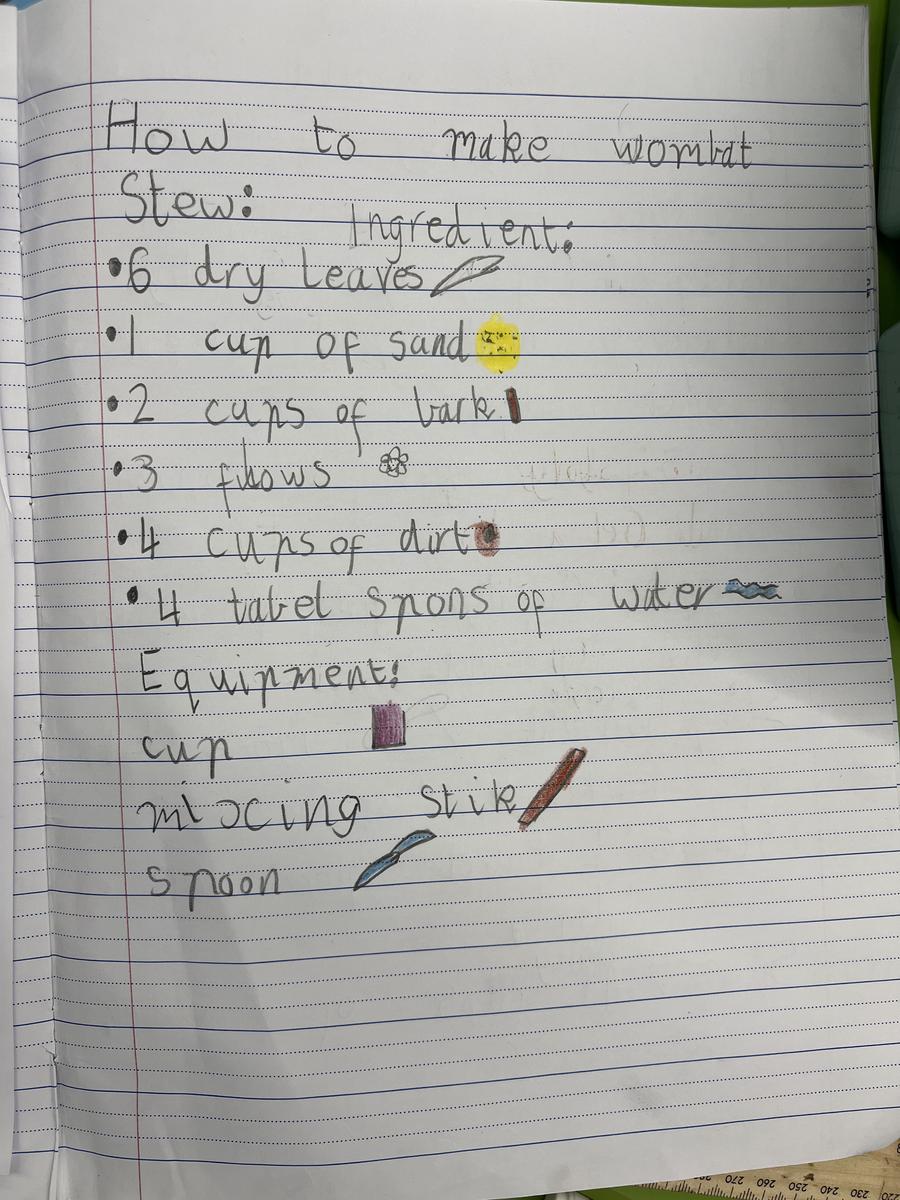 How to make wombat
Stew:
Ingredient:
•6 dry leaves
•1 cup of sand
•2 cups of bark
•3
•4 cups of dirt
•4 tabel spons of water
Equipment:
cup
mixcing stik
spoon
270 260 250 240 230 220